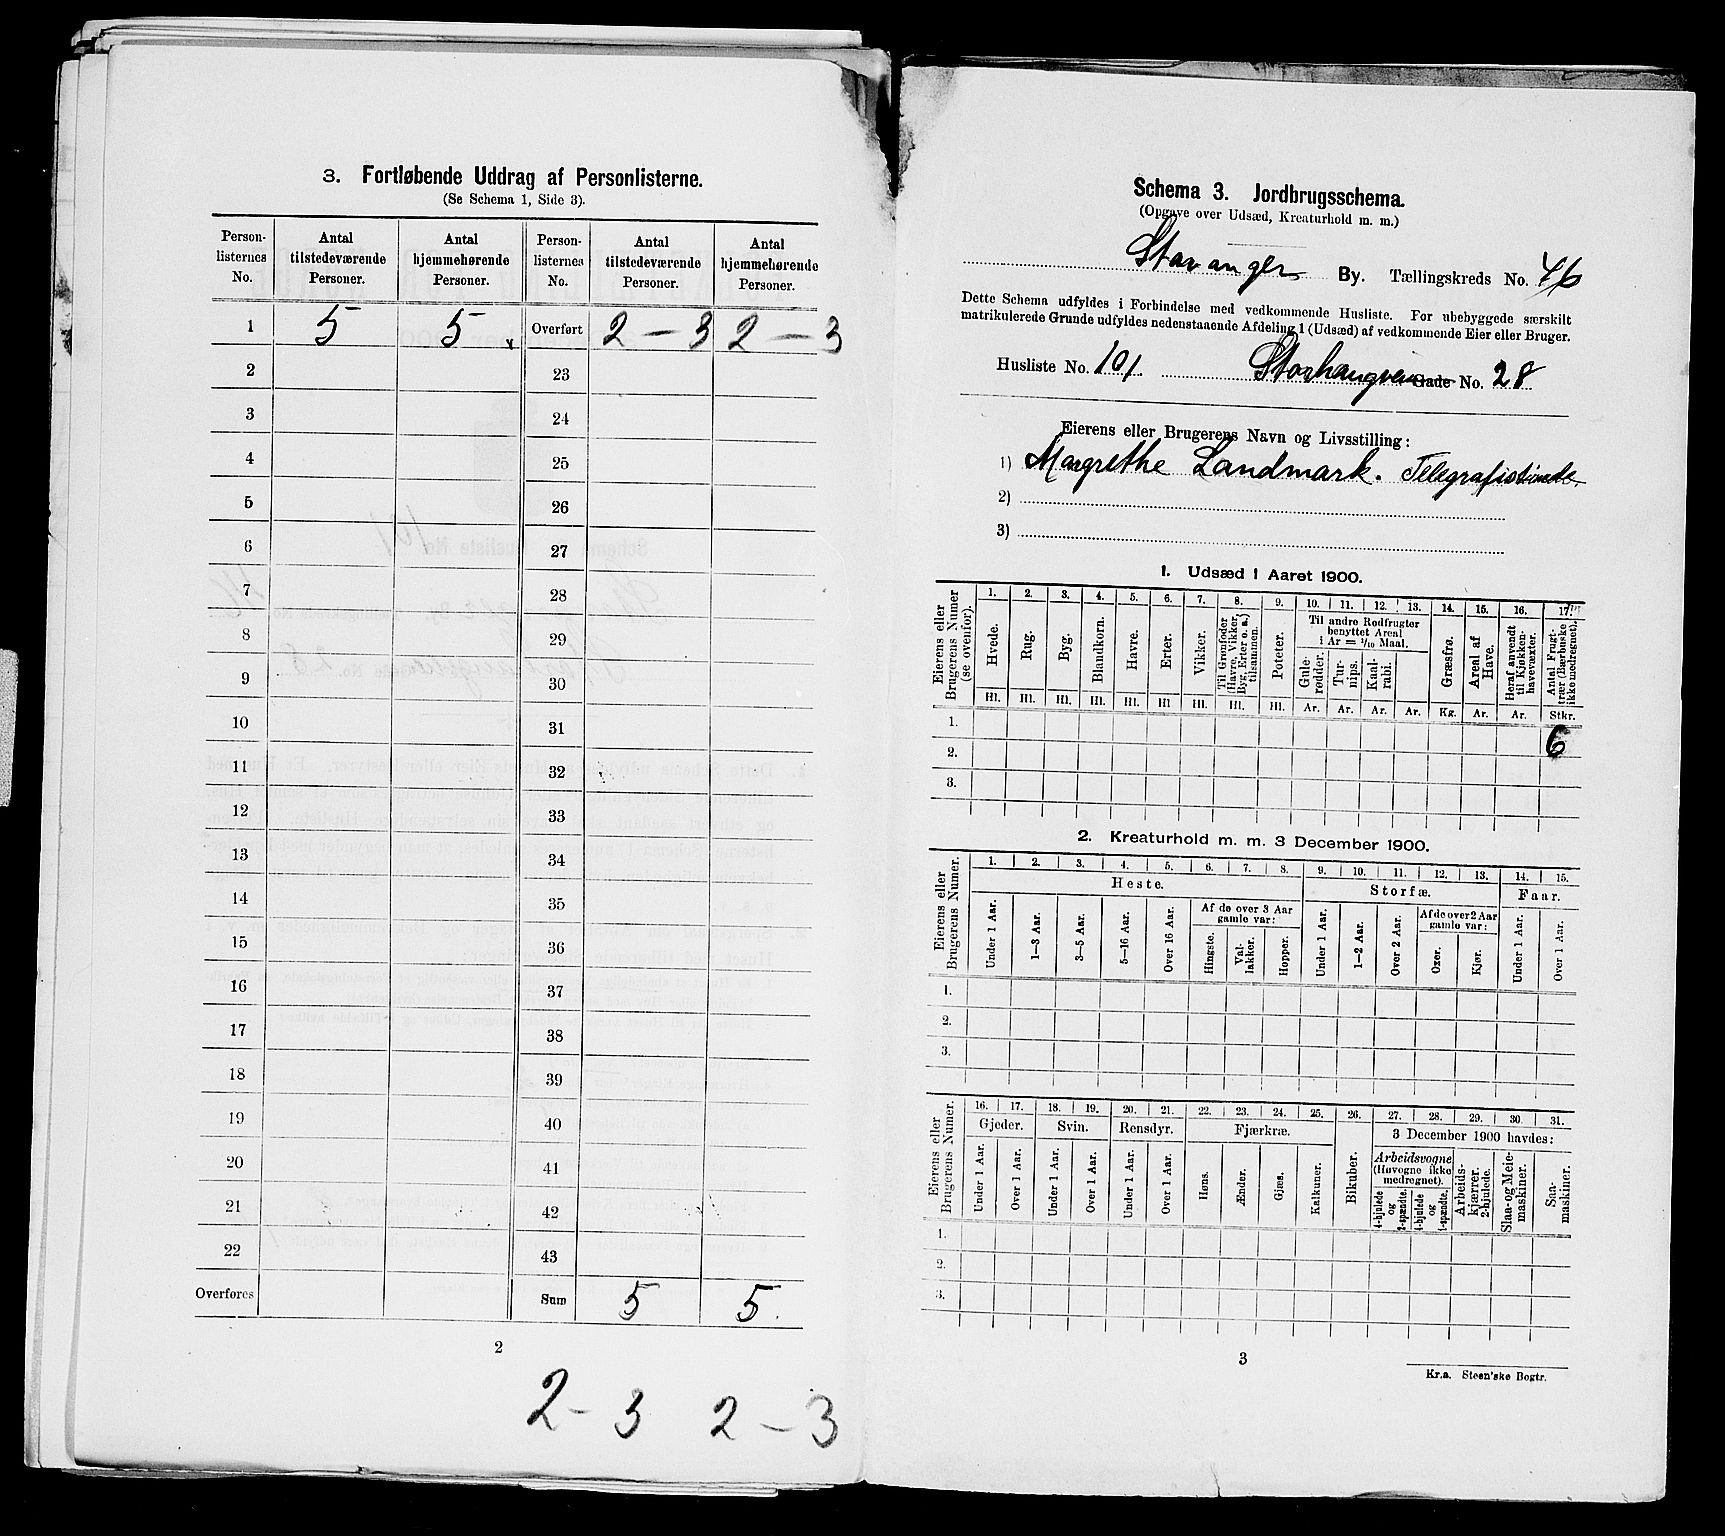 3. Fortløbende Uddrag af Personlisterne.
(Se Schema 1, Side 3).
Person-listernes No. Antal tilstedeværende Personer. Antal hjemmehørende Personer. Person-listernes No. Antal tilstedeværende Personer. Antal hjemmehørende Personer.
1 5 5 Overført 2 — 3 2 — 3
2 23
3 24
4 25
5 26
6 27
7 28
8 29
9 30
10 31
11 32
12 33
13 34
14 35
15 36
16 37
17 38
18 39
19 40
20 41
21 42
22 43
Overføres Sum 5 5.
2
2 - 3 2 - 3
Schema 3. Jordbrugsschema.
(Opgave over Udsæd, Kreaturhold m. m.)
Stavanger By. Tællingskreds No. 46
Dette Schema udfyldes i Forbindelse med vedkommende Husliste. For ubebyggede særskilt
matrikulerede Grunde udfyldes nedenstaaende Afdeling 1 (Udsæd) af vedkommende Eier eller Bruger.
Husliste No. 101. Storhaugvei Gade No. 28
Eierens eller Brugerens Navn og Livsstilling:
1) Margrethe Landmark. Telegrafistinde.
2)
3)
1. Udsæd i Aaret 1900.
Eierens eller Brugerens Numer (se ovenfor).
1. 2. 3. 4. 5. 6. 7. 8. 9. 10. 11. 12. 13. 14. 15. 16. 17.
Hvede. Rug. Byg. Blandkorn. Havre. Erter. Vikker. Til Grønfoder (Havre, Vikker, Byg, Erter o. a.) tilsammen. Poteter.
Til andre Rodfrugter benyttet Areal i Ar = 1/10 Maal.
Gule-rødder. Tur-nips. Kaal-rabi. Græsfrø. Areal af Have. Heraf anvendt til Kjøkken-havevæxter. Antal Frugt-trær (Bærbuske ikke medregnet).
Hl. Hl. Hl. Hl. Hl. Hl. Hl. Hl. Hl. Ar. Ar. Ar. Ar. Kg. Ar. Ar. Stkr.
1. 6
2.
3.
2. Kreaturhold m. m. 3 December 1900.
Eierens eller Brugerens Numer.
1. 2. 3. 4. 5. 6. 7. 8. 9. 10. 11. 12. 13. 14. 15.
Heste. Storfæ. Faar.
Af de over 3 Aar gamle var: Af de over 2 Aar gamle var:
Under 1 Aar. 1—3 Aar. 3—5 Aar. 5—16 Aar. Over 16 Aar. Hingste. Val-lakker. Hopper. Under 1 Aar. 1—2 Aar. Over 2 Aar. Oxer. Kjør. Under 1 Aar. Over 1 Aar.
1.
2.
3.
Eierens eller Brugerens Numer.
16. 17. 18. 19. 20. 21. 22. 23. 24. 25. 26. 27. 28. 29. 30. 31.
Gjeder. Svin. Rensdyr. Fjærkræ. 3 December 1900 havdes:
Under 1 Aar. Over 1 Aar. Under 1 Aar. Over 1 Aar. Under 1 Aar. Over 1 Aar. Høns. Ænder. Gjæs. Kalkuner. Bikuber.
Arbeidsvogne (Høvogne ikke medregnet).
4-hjulede og 2-spændte. 4-hjulede og 1-spændte. Arbeids-kjærrer, 2-hjulede. Slaa- og Meie-maskiner. Saa-maskiner.
1.
2.
3.
3
Kr.a. Steen'ske Bogtr.